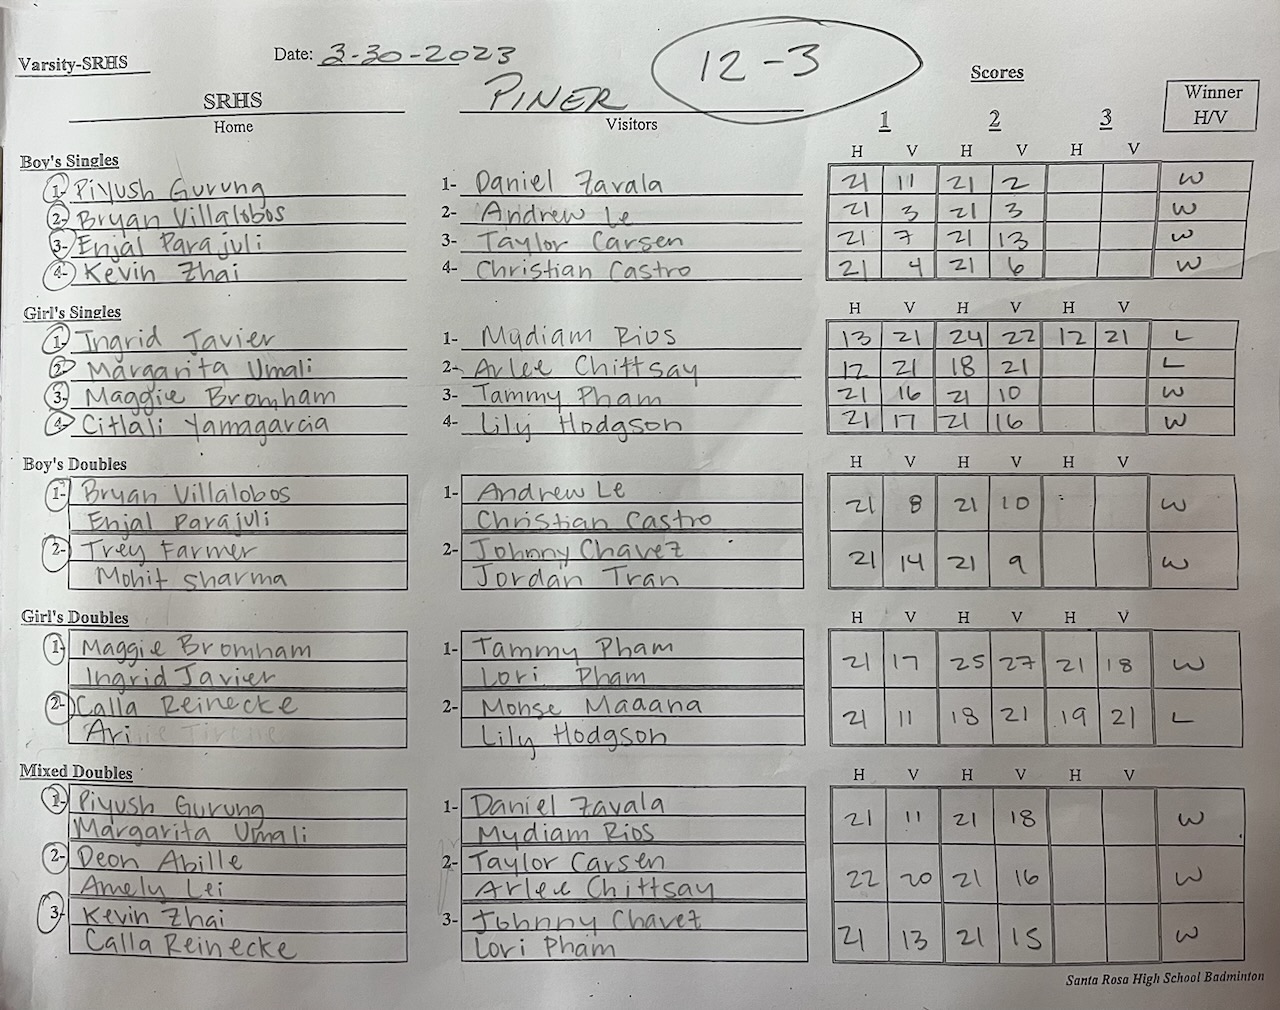 Varsity-SRHS
Date: 3-30-2023
12-3
Scores
SRHS
PINER
Home
Visitors
1 2 3
Winner
H/V
Boy's Singles
H V H V H V
1- Piyush Gurung 1- Daniel Zavala 21 11 21 2 W
2- Bryan Villalobos 2- Andrew Le 21 3 21 3 W
3- Enjal Parajuli 3- Taylor Carsen 21 7 21 13 W
4- Kevin Zhai 4- Christian Castro 21 4 21 6 W
Girl's Singles
H V H V H V
1- Ingrid Javier 1- Mydiam Rios 13 21 24 22 12 21 L
2- Margarita Umali 2- Arlee Chittsay 12 21 18 21 L
3- Maggie Bromham 3- Tammy Pham 21 16 21 10 W
4- Citlali Yamagarcia 4- Lily Hodgson 21 17 21 16 W
Boy's Doubles
H V H V H V
1- Bryan Villalobos 1- Andrew Le 21 8 21 10 W
Enjal Parajuli Christian Castro
2- Trey Farmer 2- Johnny Chavez 21 14 21 9 W
Mohit Sharma Jordan Tran
Girl's Doubles
H V H V H V
1- Maggie Bromham 1- Tammy Pham 21 17 25 27 21 18 W
Ingrid Javier Lori Pham
2- Calla Reinecke 2- Monse Maaana 21 11 18 21 19 21 L
Ari Lily Hodgson
Mixed Doubles
H V H V H V
1- Piyush Gurung 1- Daniel Zavala 21 11 21 18 W
Margarita Umali Mydiam Rios
2- Deon Abille 2- Taylor Carsen 22 20 21 16 W
Amely Lei Arlee Chittsay
3- Kevin Zhai 3- Johnny Chavez 21 13 21 15 W
Calla Reinecke Lori Pham
Santa Rosa High School Badminton